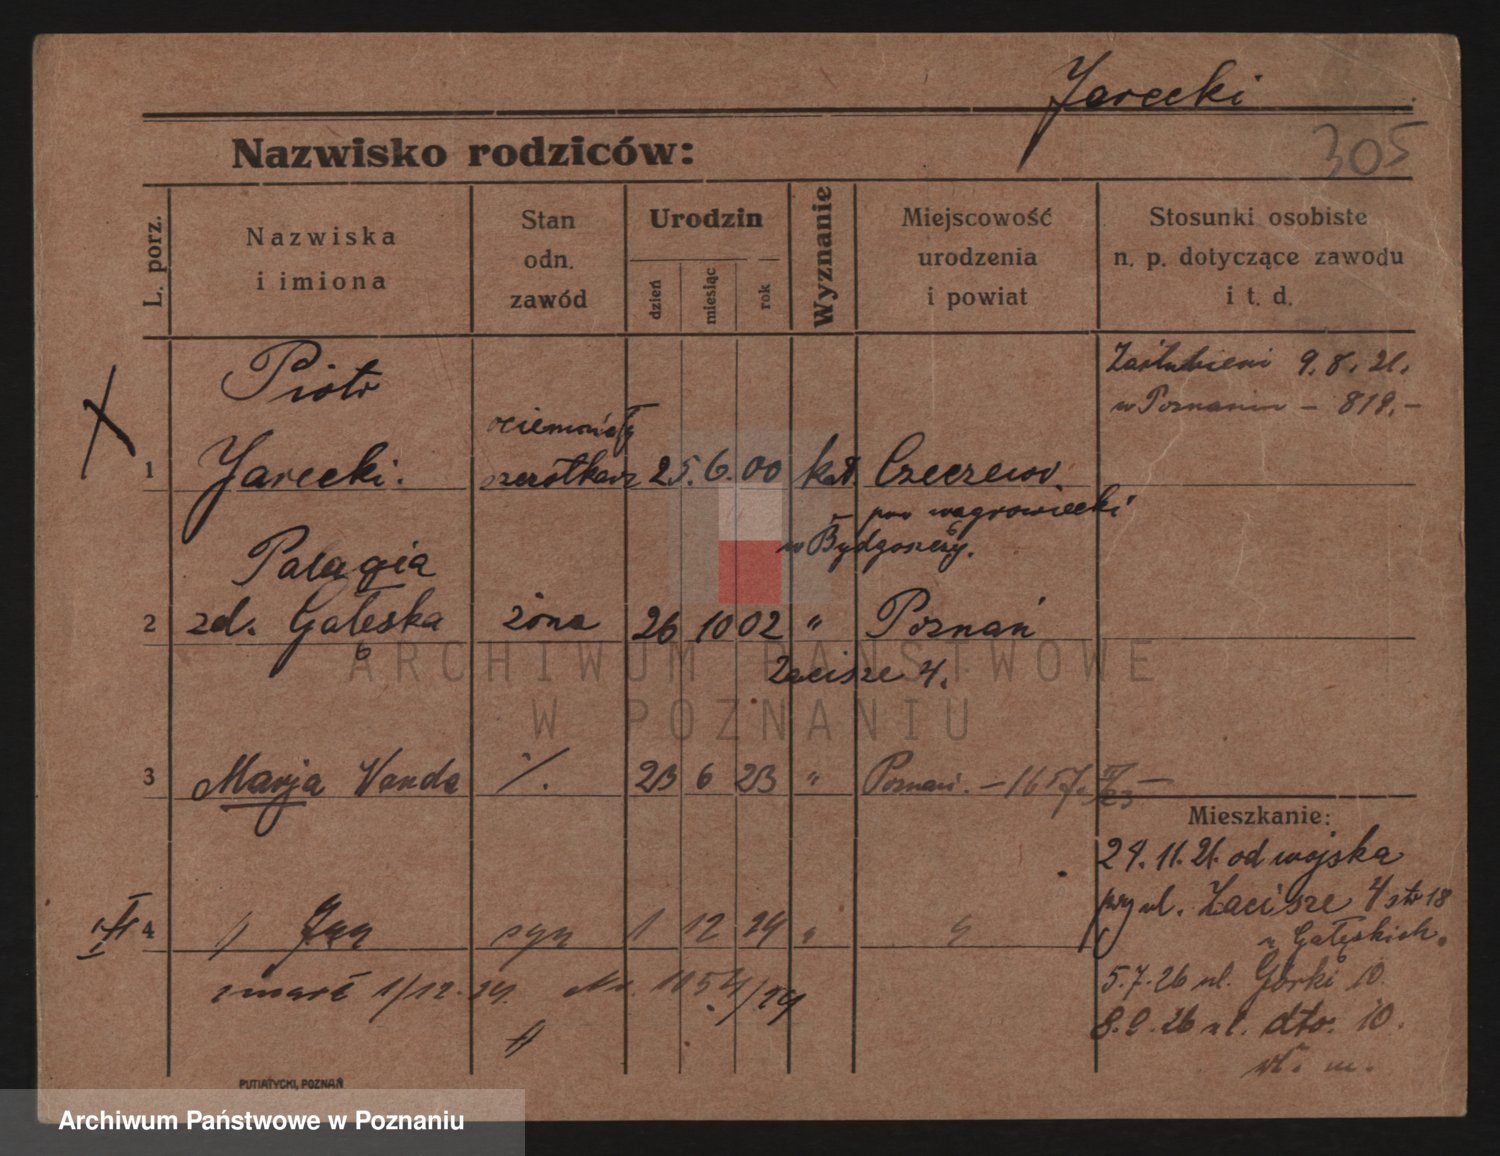 Jarecki
305
Nazwisko rodziców:
L. porz.
Nazwiska
i imiona
Stan
odn.
zawód
Urodzin
dzień
miesiąc
rok
Wyznanie
Miejscowość
urodzenia
i powiat
Stosunki osobiste
n. p. dotyczące zawodu
i t. d.
Zaślubieni 9.8.21.
w Poznaniu – 818.–
Piotr
1 Jarecki. 25. 6. 00 kat. Czeczewo.
pow wągrowiecki
w Bydgoszczy.
Palagia
2 zd. Gałęska żona 26 10 02 " Poznań
Zacisze 4.
3 Marja Wanda ./. 23 6 23 " Poznań. – 1657.
Mieszkanie:
24.11.21. od wojska
przy ul. Zacisze 4 str 18
u Gałęskich.
4 Jan syn 1 12 24 "
zmarł 1/12.24. No. 1154/24
5.7.26 ul. Górki 10.
8.9.26 ul. dto. 10.
PUTIATYCKI, POZNAŃ
ARCHIWUM PAŃSTWOWE
W POZNANIU
Archiwum Państwowe w Poznaniu